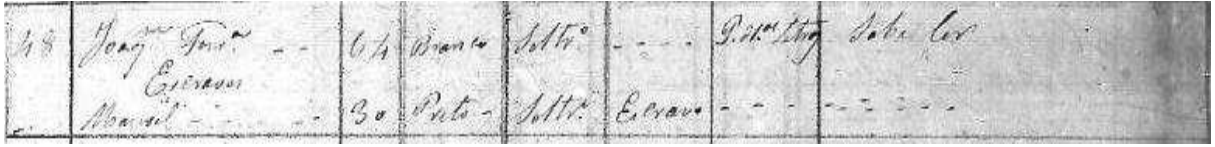 48 Joaqm Ferra - - 64 Branco Soltro - - - - Sabe ler
Escravos
Manoel - - - - - 30 Preto - Soltro Escravo - - - - - - - -